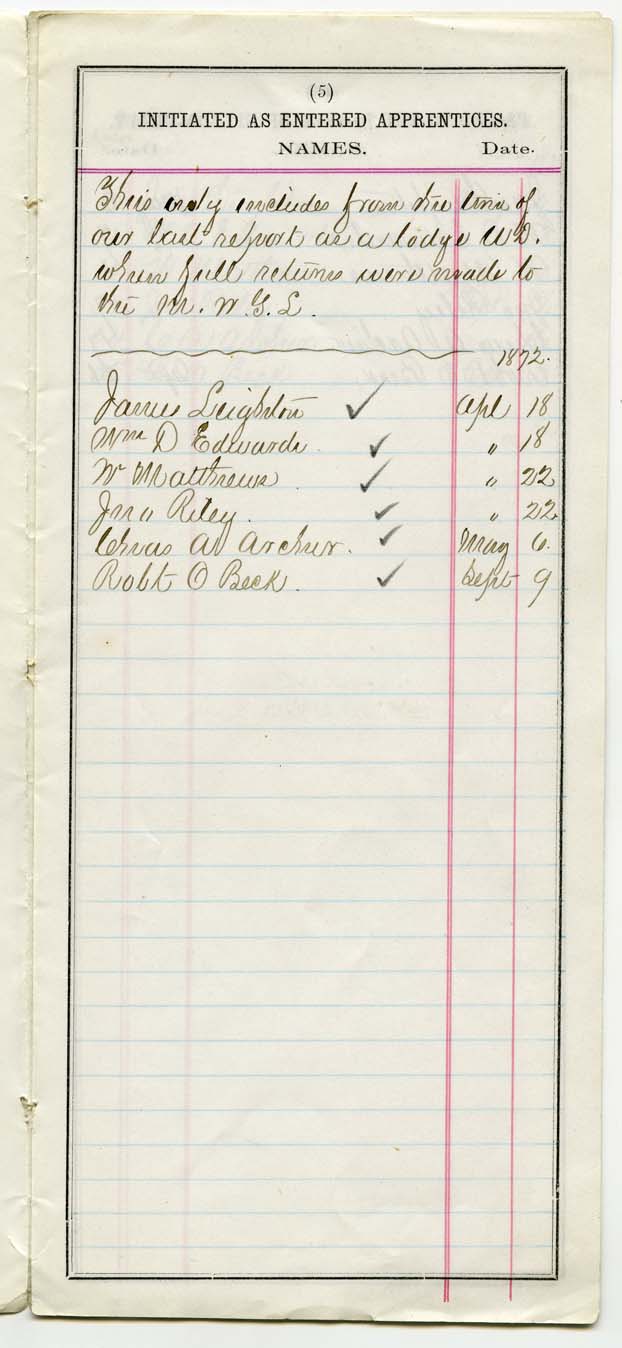 (5)
INITIATED AS ENTERED APPRENTICES.
NAMES. Date.
This only includes from the time of
our last report as a lodge U.D.
when full returns were made to
the M. W G. L.
1872.
James Leighton Apl 18
Wm D Edwards " 18
W Matthews " 22
Jno Riley " 22
Chras A Archer. May 6.
Robt O Beck. Sept 9